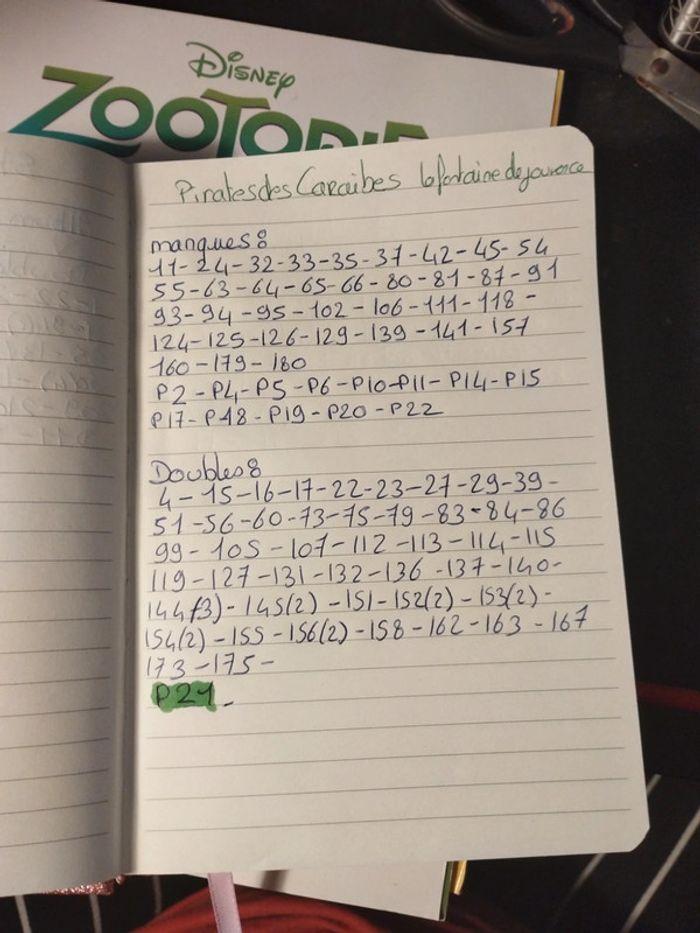 Disney
ZOOTOPIE
Pirates des Caraibes la fontaine de jouvence
manques :
11-24-32-33-35-37-42-45-54
55-63-64-65-66-80-81-87-91
93-94-95-102-106-111-118-
124-125-126-129-139-141-157
160-179-180
P2-P4-P5-P6-P10-P11-P14-P15
P17-P18-P19-P20-P22
Doubles :
4-15-16-17-22-23-27-29-39-
51-56-60-73-75-79-83-84-86
99-105-107-112-113-114-115
119-127-131-132-136-137-140-
144(3)-145(2)-151-152(2)-153(2)-
154(2)-155-156(2)-158-162-163-167
173-175-
P21-